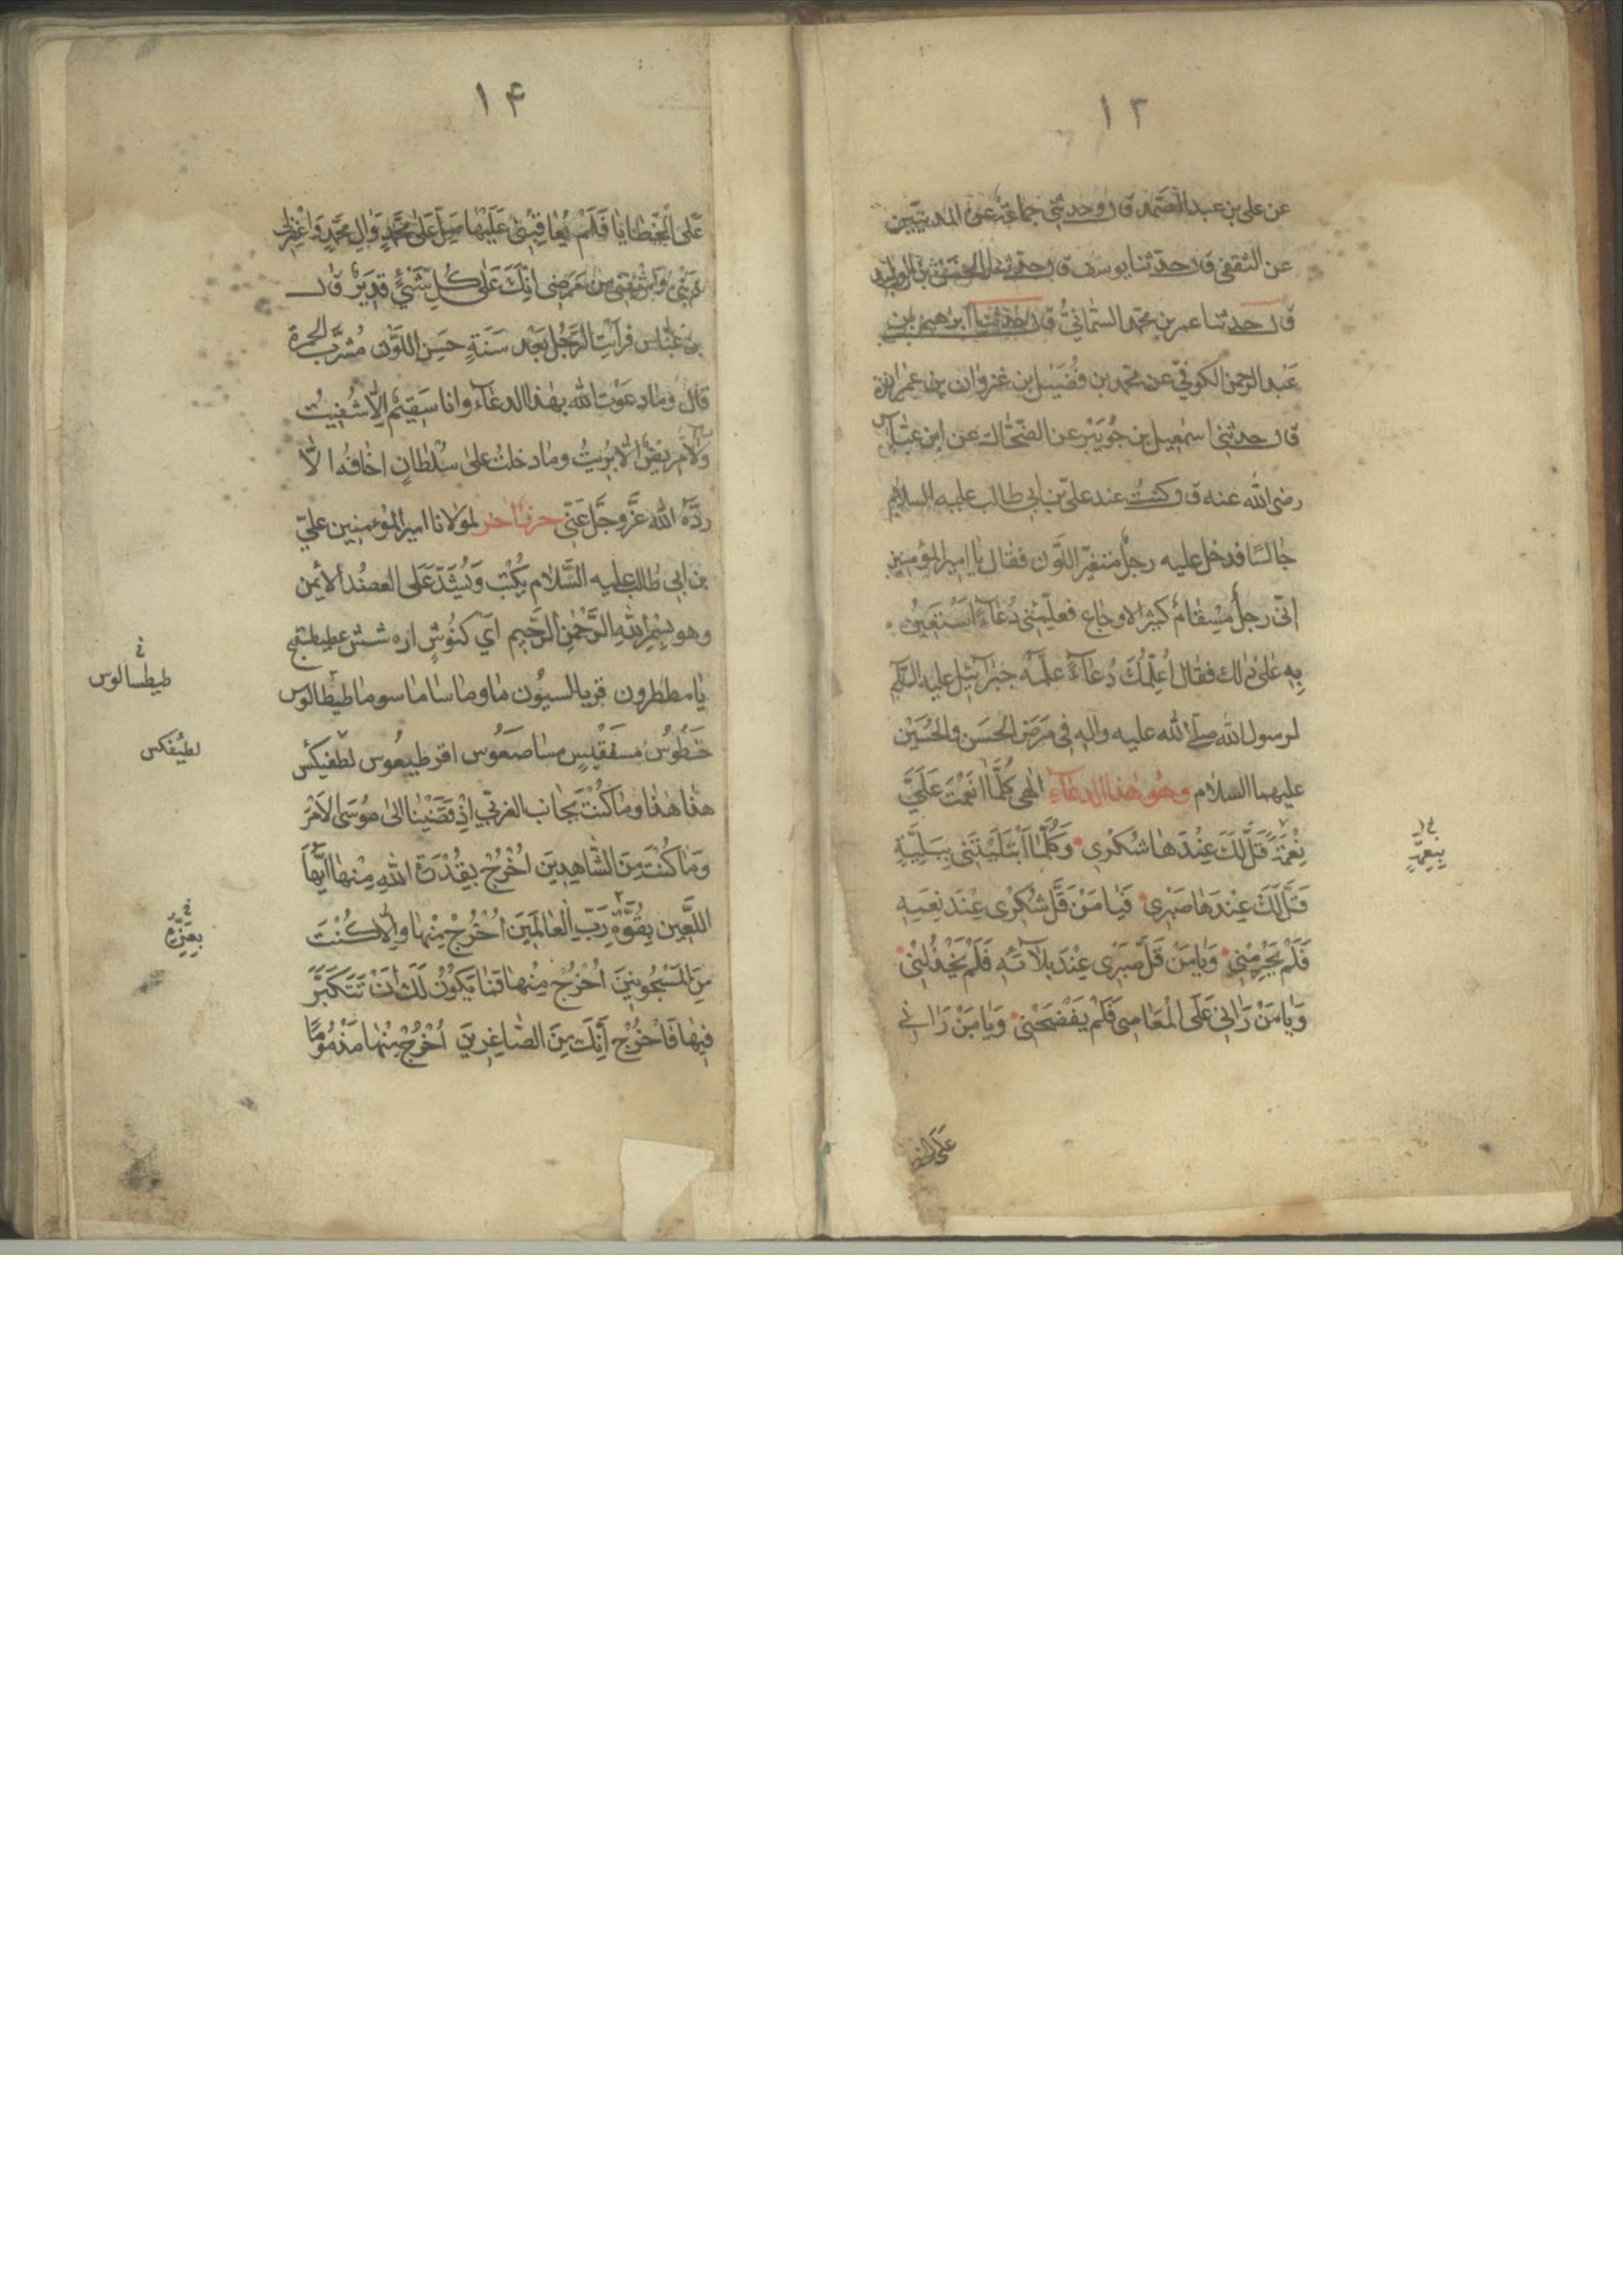 ١٣
عن على بن عبد الصمد قال وحدثني جماعة عن المدنيين
عن الثقفى قال حدثنا يوسف قال حدثنا الحسن بن الوليد
قال حدثنا عمر بن محمد السنانيّ قال حدثنا ابرهيم بن
عبد الرحمن الكوفيّ عن محمد بن فُضَيْل بن غزوان بن عمران
قال حدثني اسمعيل بن جُوَيْبر عن الضحّاك عن ابن عبّاس
رضى الله عنه قال كنتُ عند علىّ بن ابى طالب عليه السلام
جالسًا فدخل عليه رجلٌ متغيّر اللّون فقال يا امير المؤمنين
انّى رجلٌ مِسْقامٌ كثير الاوجاع فعلّمنى دُعاءً اَسْتَعينُ
بِه على ذلك فقال اُعلّمُكَ دُعاءً علّمه جبرائيل عليه السّلم
لرسول الله صلّى الله عليه واله فى مَرَض الحَسَن والحُسَيْن
عليهما السلام وهُو هٰذا الدعاء الٰهى كُلَّمَا اَنْعَمْتَ عَلَىَّ
نِعْمَةً قَلَّ لَكَ عِنْدَهَا شُكْرِي وَكُلَّمَا ابْتَلَيْتَنِى بِبَلِيَّةٍ
بِنِعْمَةٍ
قَلَّ لَكَ عِنْدَهَا صَبْرِي فَيَا مَنْ قَلَّ شُكْرِى عِنْدَ نِعَمِهِ
فَلَمْ يَحْرِمْنِي وَيَا مَنْ قَلَّ صَبْرِى عِنْدَ بَلَائِهِ فَلَمْ يَخْذُلْنِي
وَيَا مَنْ رَاٰنِى عَلَى الْمَعَاصِى فَلَمْ يَفْضَحْنِي وَيَا مَنْ رَاٰنِي
١۴
عَلَى الْخَطَايَا فَلَمْ يُعَاقِبْنِى عَلَيْهَا صَلِّ عَلَى مُحَمَّدٍ وَاٰلِ مُحَمَّدٍ وَاغْفِرْ لِى
ذَنْبِى وَاشْفِنِى مِنْ مَرَضِى اِنَّكَ عَلَى كُلِّ شَيْءٍ قَدِيرٌ قال
بن عبّاس فرأيت الرّجُل بَعْدَ سَنَةٍ حَسَنَ اللَّوْن مُشْرَبَ الحُمرة
قال وما دعَوْت الله بهٰذا الدعاء وانا سَقِيمٌ اِلّا شُفِيتُ
ولا مَرِيضٌ الّا بَرِيتُ وما دخلتُ على سُلْطانٍ اخافُه الّا
ردّهُ الله عَزَّ وجَلَّ عَنّى حرزٌ اخر لمولانا امير المؤمنين علىّ
بن ابى طالب عليه السَّلام يُكْتَب وَيُشَدُّ عَلى العضُد الأَيْمن
وهو بِسْمِ اللهِ الرَّحْمٰنِ الرَّحِيم اَى كنُوشٍ اره شش عطيطسفيخ
يا مططرون قريالسيُون ما وما ساما سوما طيطالوس
طيطسالوس
خَطُوسُ مسفَقْلِسٍ مساصعُوس اقرطيعُوس لطفيكس
لطيُفكس
هذا هذا وما كُنْتَ بجانب الغربّى اِذْ قَضَيْنا الى مُوسَى الاَمْرَ
وَمَا كُنْتَ مِنَ الشَّاهِدِينَ اُخْرُجْ بِقُدْرَةِ اللهِ مِنْهَا اَيُّهَا
اللَّعين بِقُوَّةِ رَبِّ الْعَالَمِينَ اُخْرُجْ مِنْهَا وَاِلّا كُنْتَ
بعِزّةِ
مِنَ الْمَسْجُونِينَ اُخْرُجْ مِنْهَا فَمَا يَكُونُ لَكَ اَنْ تَتَكَبَّرَ
فِيهَا فَاخْرُجْ اِنَّكَ مِنَ الصَّاغِرِينَ اُخْرُجْ مِنْهَا مَذْمُومًا